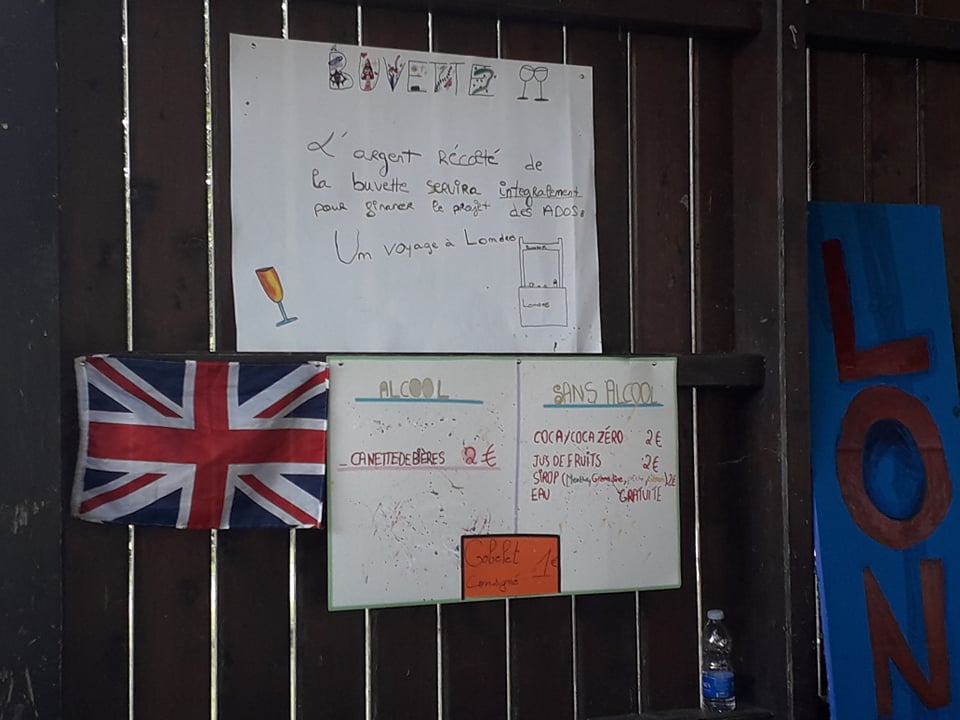 BUVETTE
L'argent RÉCOLTÉ de
la buvette SERVIRA intégralement
pour financer le projet des ADOS.
Un voyage à Londres
Londres
ALCOOL
_ CANETTE DE BIÈRES 2 €
SANS ALCOOL
COCA/COCA ZÉRO 2 €
JUS DE FRUITS 2 €
SIROP (Menthe, Grenadine, pêche, citron) 2€
EAU GRATUITE
Gobelet 1€
Consigné
LON